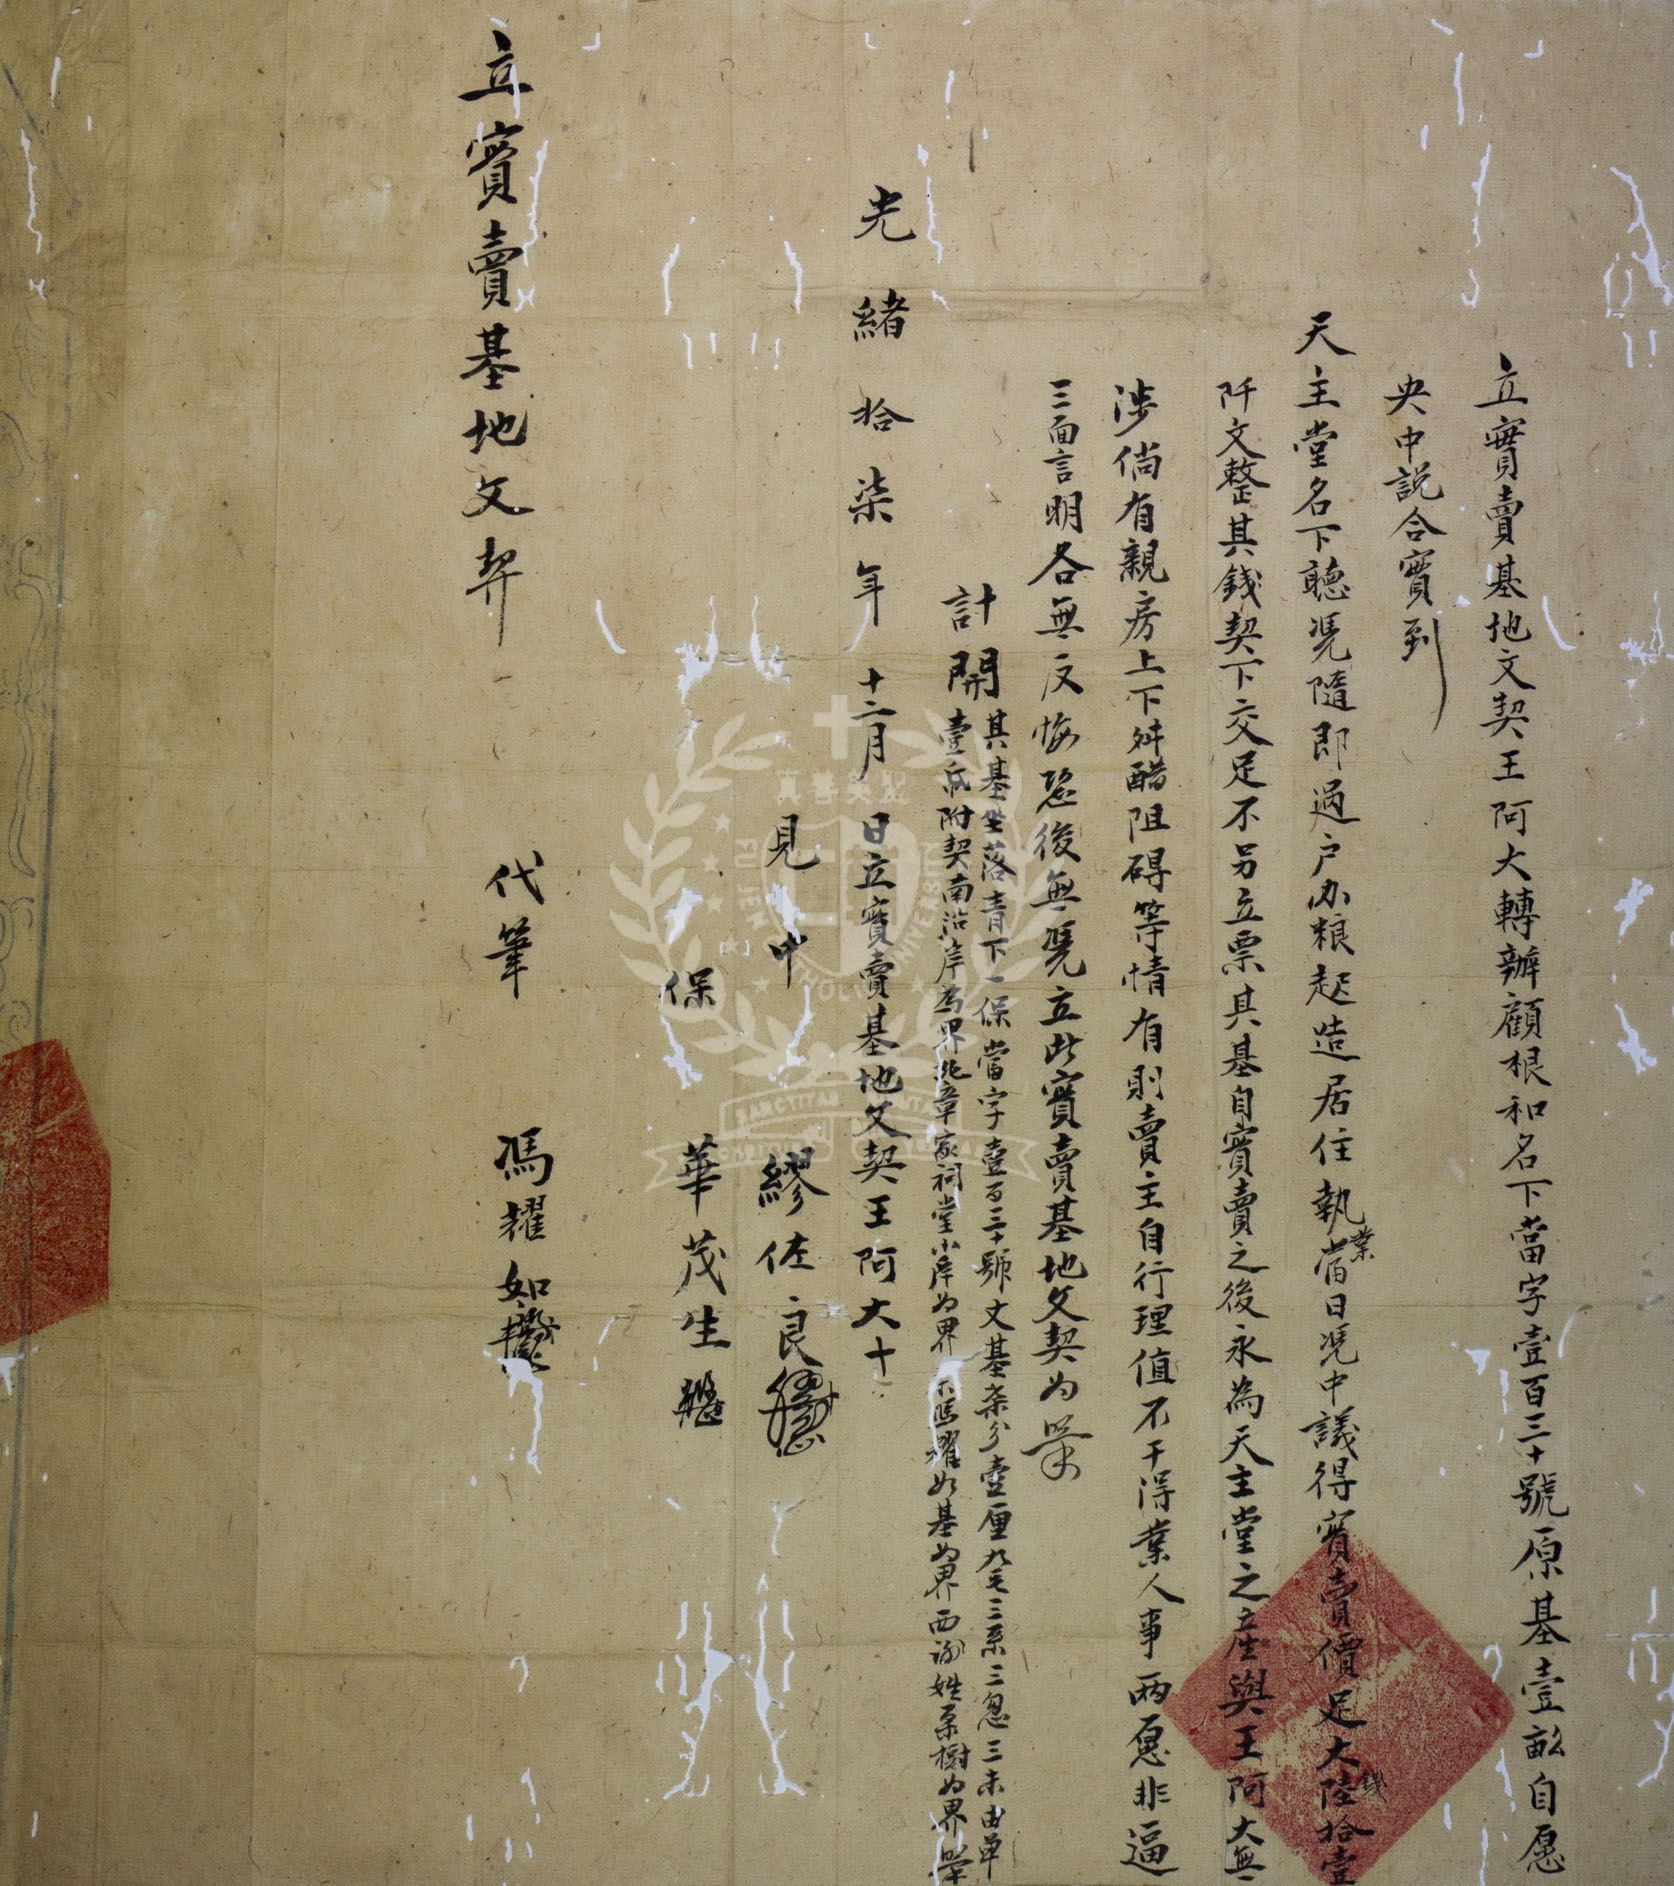 立實賣基地文契王阿大轉辦顧根和名下當字壹百三十號原基壹畝自愿
央中説合實到
天主堂名下聽凴隨即過户办粮起造居住執業當日凴中議得實賣價足大錢陸拾壹
阡文整其錢契下交足不另立票其基自實賣之後永為天主堂之産與王阿大無
涉倘有親房上下舛醋阻碍等情有則賣主自行理值不干得業人事兩愿非逼
三面言明各無反悔恐後無凴立此實賣基地文契為
計開其基坐落青下一保當字壹百三十號文基柒分壹厘九毛三系三忽三末由单
壹昏附契南沿岸為界北章家祠堂小岸为界東馮耀如基为界西 姓系樹为界
光緒拾柒年十二月 日立實賣基地文契王阿大十
見中 繆佐良
保 華茂生
代筆 馮耀如
立實賣基地文契